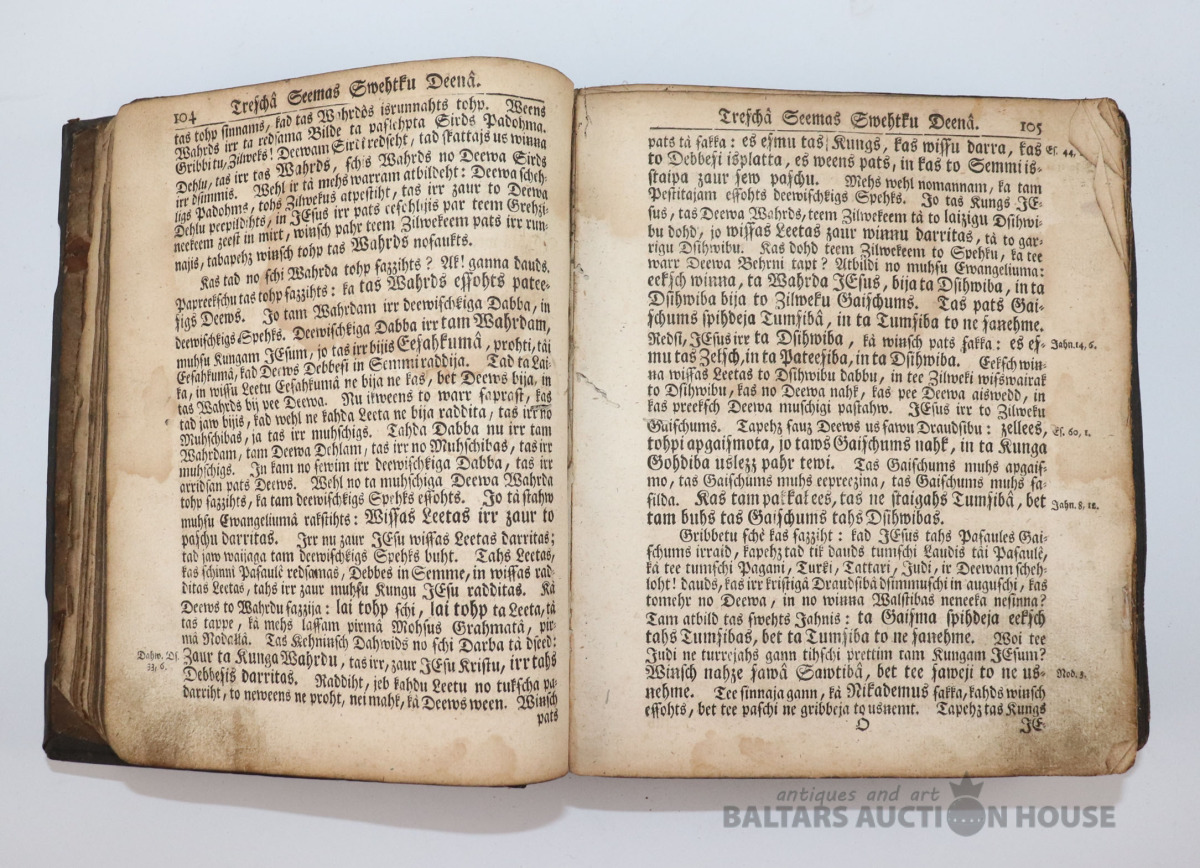 104 Treschâ Seemas Swehtku Deenâ.
tas tohp sinnams, kad tas Wahrds isrunnahts tohp. Weens
Wahrds irr ta redsama Bilde ta paslehpta Sirds Padohma.
Gribbi tu, Zilweks! Deewam Sirdi redseht, tad skattajs us winna
Dehlu, tas irr tas Wahrds, schis Wahrds no Deewa Sirds
irr dsimmis. Wehl ir tà mehs warram atbildeht: Deewa scheh-
ligs Padohms, tohs Zilwekus atpestiht, tas irr zaur to Deewa
Dehlu peepildihts, in JEsus irr pats ceschlijis par teem Grehzi-
neekeem zeest in mirt, winsch pahr teem Zilwekeem pats irr run-
najis, tabapehz winsch tohp tas Wahrds nosaukts.
Kas tad no schi Wahrda tohp sazzihts? Ak! ganna dauds.
Papreekschu tas tohp sazzihts: ka tas Wahrds essohts patee-
sigs Deews. Jo tam Wahrdam irr deewischkiga Dabba, in
deewischkigs Spehks. Deewischkiga Dabba irr tam Wahrdam,
muhsu Kungam JEsum, jo tas irr bijis Eesahkumâ, prohti, tâi
Eesahkumâ, kad Deews Debbesi in Semmi raddija. Tad ta Lai-
ka, in wissu Leetu Eesahkumâ ne bija ne kas, bet Deews bija, in
tas Wahrds bij pee Deewa. Nu ikweens to warr saprast, kas
tad jaw bijis, kad wehl ne kahda Leeta ne bija raddita, tas irr no
Muhschibas, ja tas irr muhschigs. Tahda Dabba nu irr tam
Wahrdam, tam Deewa Dehlam, tas irr no Muhschibas, tas irr
muhschigs. In kam no sewim irr deewischkiga Dabba, tas irr
arridsan pats Deews. Wehl no ta muhschiga Deewa Wahrda
tohp sazzihts, ka tam deewischkigs Spehks essohts. Jo tà stahw
muhsu Ewangeliumâ rakstihts: Wissas Leetas irr zaur to
paschu darritas. Irr nu zaur JEsu wissas Leetas darritas;
tad jaw waijaga tam deewischkigs Spehks buht. Tahs Leetas,
kas schinni Pasaulê redsamas, Debbes in Semme, in wissas rad-
ditas Leetas, tahs irr zaur muhsu Kungu JEsu radditas. Kà
Deews to Wahrdu sazzija: lai tohp schi, lai tohp ta Leeta, tà
tas tappe, kà mehs lassam pirmâ Mohsus Grahmatâ, pir-
mâ Nodallâ. Tas Kehninsch Dahwids no schi Darba tà dseed:
Dahw. Ds. 33, 6. Zaur ta Kunga Wahrdu, tas irr, zaur JEsu Kristu, irr tahs
Debbesis darritas. Raddiht, jeb kahdu Leetu no tukscha pa-
darriht, to neweens ne proht, nei mahk, kà Deews ween. Winsch
pats
Treschâ Seemas Swehtku Deenâ. 105
pats tà sakka: es esmu tas Kungs, kas wissu darra, kas Es. 44,
to Debbesi isplatta, es weens pats, in kas to Semmi is-
staipa zaur sew paschu. Mehs wehl nomannam, ka tam
Pestitajam essohts deewischkigs Spehks. Jo tas Kungs JE-
sus, tas Deewa Wahrds, teem Zilwekeem tà to laizigu Dsihwi-
bu dohd, jo wissas Leetas zaur winnu darritas, tà to gar-
rigu Dsihwibu. Kas dohd teem Zilwekeem to Spehku, ka tee
warr Deewa Behrni tapt? Atbildi no muhsu Ewangeliuma:
eeksch winna, ta Wahrda JEsus, bija ta Dsihwiba, in ta
Dsihwiba bija to Zilweku Gaischums. Tas pats Gai-
schums spihdeja Tumsibâ, in ta Tumsiba to ne sanehme.
Redsi, JEsus irr ta Dsihwiba, kà winsch pats sakka: es es- Jahn. 14, 6.
mu tas Zelsch, in ta Pateesiba, in ta Dsihwiba. Eeksch win-
na wissas Leetas to Dsihwibu dabbu, in tee Zilweki wisswairak
to Dsihwibu, kas no Deewa nahk, kas pee Deewa aiswedd, in
kas preeksch Deewa muschigi pastahw. JEsus irr to Zilweku
Gaischums. Tapehz sauz Deews us sawu Draudsibu: zellees, Es. 60, 1.
tohpi apgaismota, jo taws Gaischums nahk, in ta Kunga
Gohdiba uslezz pahr tewi. Tas Gaischums muhs apgais-
mo, tas Gaischums muhs eepreezina, tas Gaischums muhs sa-
silda. Kas tam pakkal ees, tas ne staigahs Tumsibâ, bet Jahn. 8, 12.
tam buhs tas Gaischums tahs Dsihwibas.
Gribbetu schê kas sazziht: kad JEsus tahs Pasaules Gai-
schums irraid, kapehz tad tik dauds tumschi Laudis tâi Pasaulê,
kà tee tumschi Pagani, Turki, Tattari, Judi, ir Deewam scheh-
loht! dauds, kas irr kristigâ Draudsibâ dsimmuschi in auguschi, kas
tomehr no Deewa, in no winna Walstibas neneeka nesinna?
Tam atbild tas swehts Jahnis: ta Gaisma spihdeja eeksch
tahs Tumsibas, bet ta Tumsiba to ne sanehme. Woi tee
Judi ne turrejahs gann tihschi prettim tam Kungam JEsum?
Winsch nahze sawâ Sawtibâ, bet tee saweji to ne us-
nehme. Tee sinnaja gann, kà Nikademus sakka, kahds winsch Nod. 3.
essohts, bet tee paschi ne gribbeja to usnemt. Tapehz tas Kungs
O JE-
antiques and art
BALTARS AUCTION HOUSE